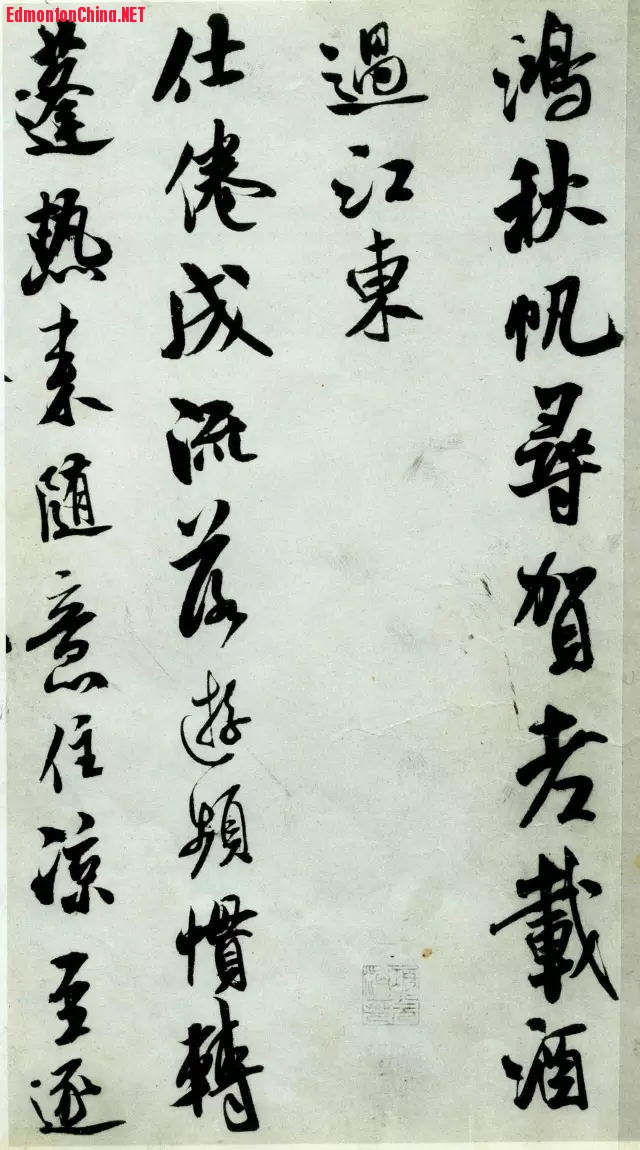 EdmontonChina.NET
鴻秋帆尋賀老載酒
過江東
仕倦成流落遊頻慣轉
蓬熱來隨意住涼至逐